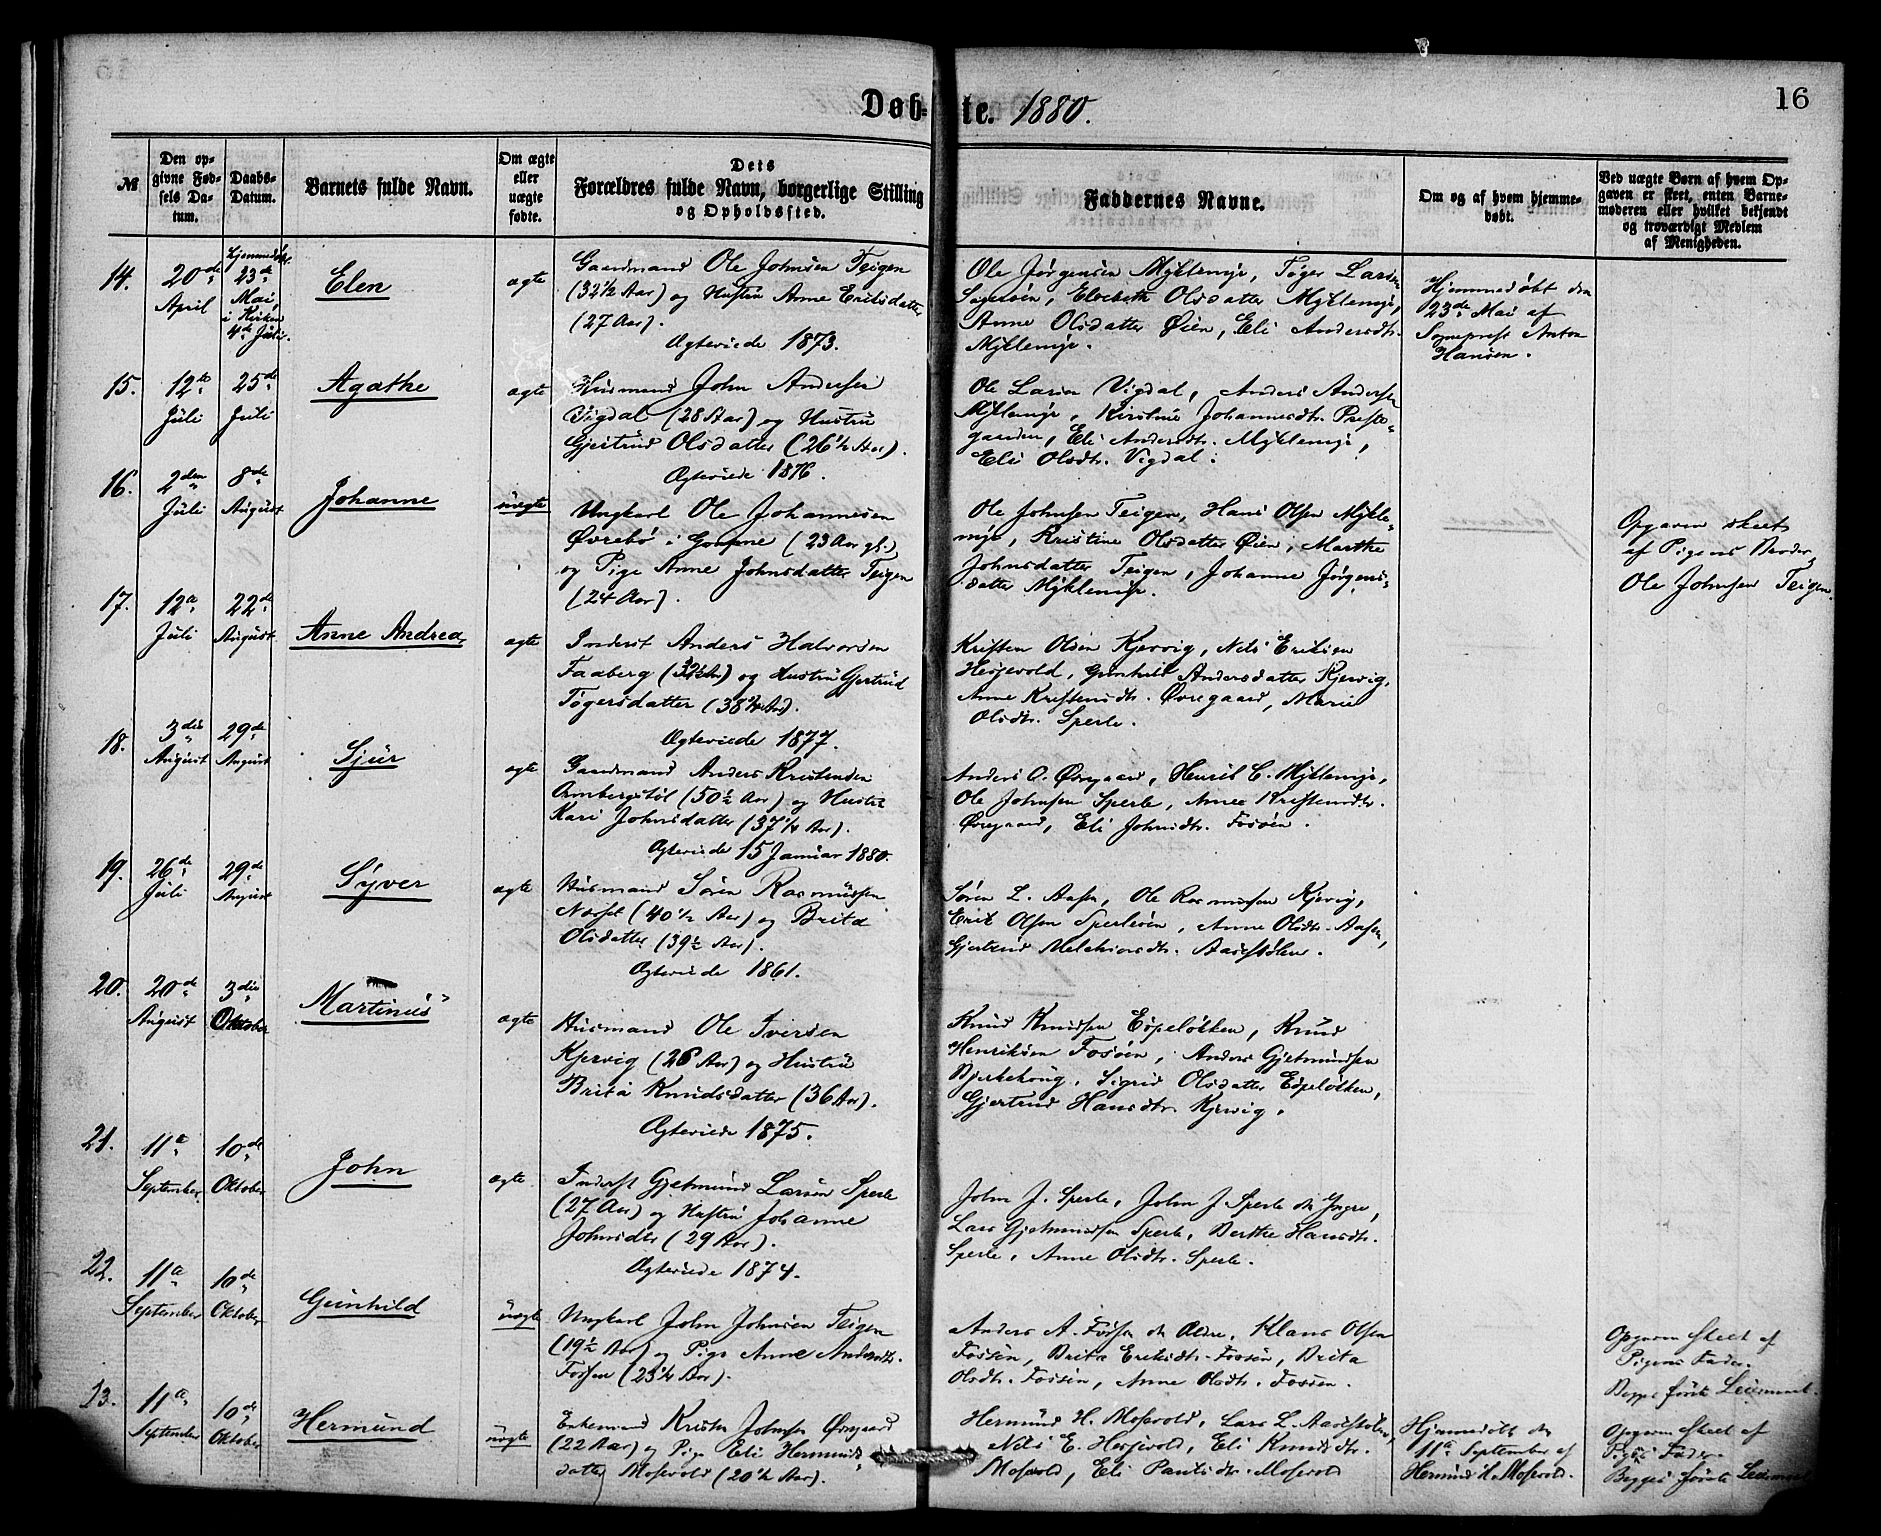 Døb-te. 1880.
16
№
Den opgivne Fødsels Datum.
Daabs-Datum.
Barnets fulde Navn.
Om ægte eller uægte fødte.
Dets
Forældres fulde Navn, borgerlige Stilling
og Opholdssted.
Faddernes Navne.
Om og af hvem hjemmedøbt.
Ved uægte Børn af hvem Opgaven er skeet, enten Barnemoderen eller hvilket bekjendt og troværdigt Medlem af Menigheden.
14.
20de April
Hjemmedøbt 23de Mai, i Kirken 4de Juli.
Elen
ægte
Gaardmand Ole Johnsen Teigen
(32½ Aar) og Hustru Anne Eriksdatter
(27 Aar).
Ægteviede 1873.
Ole Jørgensen Myklemyr, Tøger Larsen
Elsebeth Olsdatter Myklemyr,
Anne Olsdatter Øien, Eli Andersdtr.
Myklemyr.
Hjemmedøbt den
23de Mai af
Sogneprest Anton
Hansen.
15.
12te Juli
25de Juli
Agathe
ægte
Husmand John Andersen
Vigdal (28 Aar) og Hustru
Gjertrud Olsdatter (26½ Aar).
Ægteviede 1876.
Ole Larsen Vigdal, Anders Andersen
Myklemyr, Kirstine Johannesdtr. Preste-
gaarden, Eli Andersdtr. Myklemyr,
Eli Olsdtr. Vigdal.
16.
2den Juli
8de August
Johanne
uægte
Ungkarl Ole Johannesen
Øvrebø i Goupne (23 Aar gl.)
og Pige Anne Johnsdatter Teigen
(24 Aar).
Ole Johnsen Teigen, Hans Olsen Mykle-
myr, Kristine Olsdatter Øien, Marthe
Johnsdatter Teigen, Johanne Jørgens-
datter Myklemyr.
Opgaven skeet
af Pigens Broder
Ole Johnsen Teigen.
17.
12te Juli
22de August
Anne Andrea
ægte
Inderst Anders Halvorsen
Faaberg (32½ Aar) og Hustru Gjertrud
Tøgersdatter (38¼ Aar).
Ægteviede 1877.
Kristen Olsen Kjervig, Nils Eriksen
Hesjevold, Gunhild Andersdatter Kjervig,
Anne Kristensdtr. Øvregaard, Marie
Olsdtr. Sperle.
18.
3die August
29de August
Sjur
ægte
Gaardmand Anders Kristensen
Ormbergstøl (50½ Aar) og Hustru
Kari Johnsdatter (37¼ Aar).
Ægteviede 15 Januar 1880.
Anders O. Øvregaard, Henrik C. Myklemyr,
Ole Johnsen Sperle, Anne Kristensdtr.
Øvregaard, Eli Johnsdtr. Fosøen.
19.
26de Juli
29de August
Syver
ægte
Husmand Søren Rasmussen
Næset (40½ Aar) og Brita
Olsdatter (39½ Aar).
Ægteviede 1861.
Søren L. Aasen, Ole Rasmussen Kjervig,
Erik Olsen Sperleøen, Anne Olsdtr. Aasen,
Gjertrud Melchiorsdtr. Aaestølene.
20.
20de August
3die Oktober
Martinus
ægte
Husmand Ole Iversen
Kjervig (26 Aar) og Hustru
Brita Knudsdatter (36 Aar).
Ægteviede 1875.
Knud Knudsen Espeløkken, Knud
Henriksen Fosøen, Anders Gjetmundsen
Bjerkehoug, Sigrid Olsdatter Espeløkken,
Gjertrud Hansdtr. Kjervig.
21.
11te September
10de Oktober
John
ægte
Inderst Gjetmund Larsen Sperle
(27 Aar) og Hustru Johanne
Johnsdtr (29 Aar).
Ægteviede 1874.
John J. Sperle, John J. Sperle de Yngre,
Lars Gjetmundsen Sperle, Berthe Hansdtr.
Sperle, Anne Olsdtr. Sperle.
22.
11te September
10de Oktober
Gunhild
uægte
Ungkarl John Johnsen Teigen
(19½ Aar) og Pige Anne Andersdtr.
Fossen (23¼ Aar).
Anders A. Fossen de Ældre, Klaus Olsen
Fossøen, Brita Eriksdtr. Fossøen, Brita
Olsdtr. Fossøen, Anne Olsdtr. Fossøen.
Opgaven skeet af
Pigens Fader.
Begges første Leiermaal.
23.
11te September
10de Oktober
Hermund
uægte
Enkemand Kristen Johnsen Øvregaard
(22 Aar) og Pige Eli Hermunds-
datter Mosevold (20½ Aar).
Hermund H. Mosevold, Lars L. Aaestølen,
Nils E. Hesjevold, Eli Knudsdtr.
Mosevold, Eli Paulsdtr. Mosevold
Hjemmedøbt den
11te September af
Hermund H. Mosevold.
Opgaven skeet af
Pigens Fader.
Begges første Leiermaal.